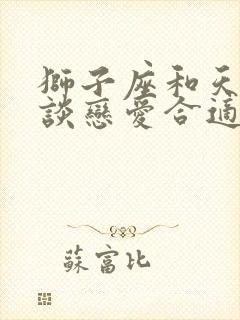 獅子座和天
談戀愛合適
蘇富比